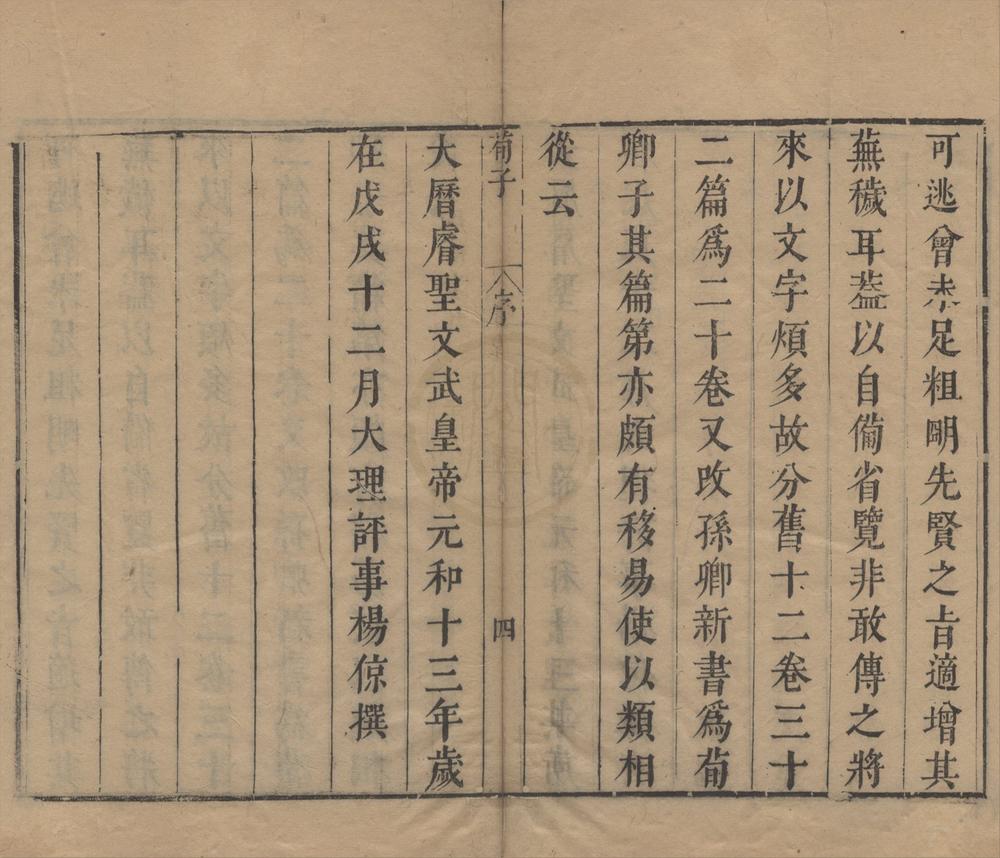 可逃曾未足粗明先賢之旨適增其
蕪穢耳蓋以自備省覽非敢傳之將
來以文字煩多故分舊十二卷三十
二篇爲二十卷又改孫卿新書爲荀
卿子其篇第亦頗有移易使以類相
從云
荀子 序 四
大曆睿聖文武皇帝元和十三年歲
在戊戌十二月大理評事楊倞撰